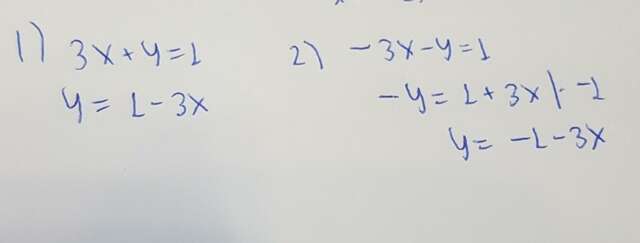 1) 3x+y=1
y= 1-3x
2) -3x-y=1
-y= 1+3x |· -1
y= -1-3x